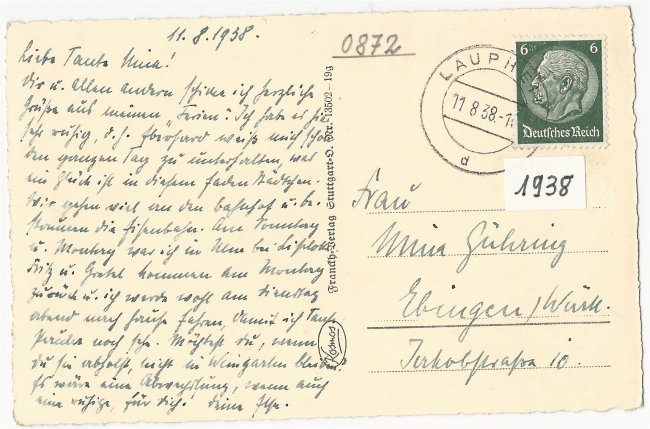 11.8.1938.
Liebe Tante Mina!
Dir u. allen andern schicke ich herzliche
Grüße aus meinen "Ferien". Ich habe es hier
sehr ruhig, d.h. Eberhard weiß mich schon
den ganzen Tag zu unterhalten, was
ein Glück ist in diesem faden Städtchen.
Wir gehen viel an den Bahnhof u. be-
staunen die Eisenbahn. Am Sonntag
u. Montag war ich in Ulm bei Liselotte
Fritz u. Gretel kommen am Montag
zurück u. ich werde wohl am Dienstag
abend nach Hause fahren, damit ich Tante
Paula noch sehe. Möchtest du, wenn
du sie abholst, nicht in Weingarten bleiben?
Es wäre eine Abwechslung, wenn auch
eine ruhige, für dich! Deine Ilse.
0872
Franckh-Verlag Stuttgart-O. Nr. 13502-19g
Kosmos
LAUPH
11.8.38-1
d
6 6
Deutsches Reich
1938
Frau
Mina Gühring
Ebingen/Württ.
Jakobstraße 10